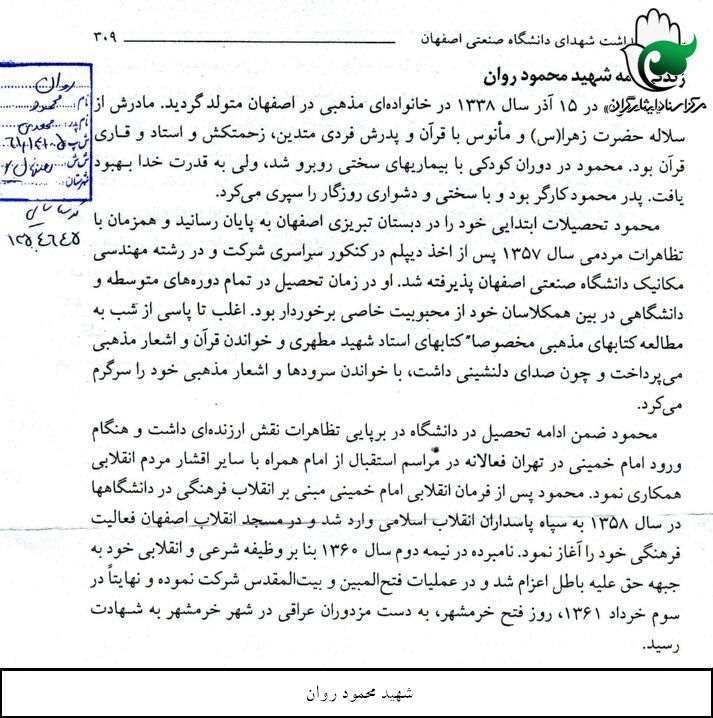 داشت شهدای دانشگاه صنعتی اصفهان ۳۰۹
مرکز اسناد ایثارگران
نامه شهید محمود روان
در ۱۵ آذر سال ۱۳۳۸ در خانواده‌ای مذهبی در اصفهان متولد گردید. مادرش از
سلاله حضرت زهرا(س) و مأنوس با قرآن و پدرش فردی متدین، زحمتکش و استاد و قاری
قرآن بود. محمود در دوران کودکی با بیماریهای سختی روبرو شد، ولی به قدرت خدا بهبود
یافت. پدر محمود کارگر بود و با سختی و دشواری روزگار را سپری می‌کرد.
محمود تحصیلات ابتدایی خود را در دبستان تبریزی اصفهان به پایان رسانید و همزمان با
تظاهرات مردمی سال ۱۳۵۷ پس از اخذ دیپلم در کنکور سراسری شرکت و در رشته مهندسی
مکانیک دانشگاه صنعتی اصفهان پذیرفته شد. او در زمان تحصیل در تمام دوره‌های متوسطه و
دانشگاهی در بین همکلاسان خود از محبوبیت خاصی برخوردار بود. اغلب تا پاسی از شب به
مطالعه کتابهای مذهبی مخصوصاً کتابهای استاد شهید مطهری و خواندن قرآن و اشعار مذهبی
می‌پرداخت و چون صدای دلنشینی داشت، با خواندن سرودها و اشعار مذهبی خود را سرگرم
می‌کرد.
محمود ضمن ادامه تحصیل در دانشگاه در برپایی تظاهرات نقش ارزنده‌ای داشت و هنگام
ورود امام خمینی در تهران فعالانه در مراسم استقبال از امام همراه با سایر اقشار مردم انقلابی
همکاری نمود. محمود پس از فرمان انقلابی امام خمینی مبنی بر انقلاب فرهنگی در دانشگاهها
در سال ۱۳۵۸ به سپاه پاسداران انقلاب اسلامی وارد شد و در مسجد انقلاب اصفهان فعالیت
فرهنگی خود را آغاز نمود. نامبرده در نیمه دوم سال ۱۳۶۰ بنا بر وظیفه شرعی و انقلابی خود به
جبهه حق علیه باطل اعزام شد و در عملیات فتح‌المبین و بیت‌المقدس شرکت نموده و نهایتاً در
سوم خرداد ۱۳۶۱، روز فتح خرمشهر، به دست مزدوران عراقی در شهر خرمشهر به شهادت
رسید.
روان
نام: محمود
نام پدر:
ش پ
ش ش
شهرستان:
شهید محمود روان